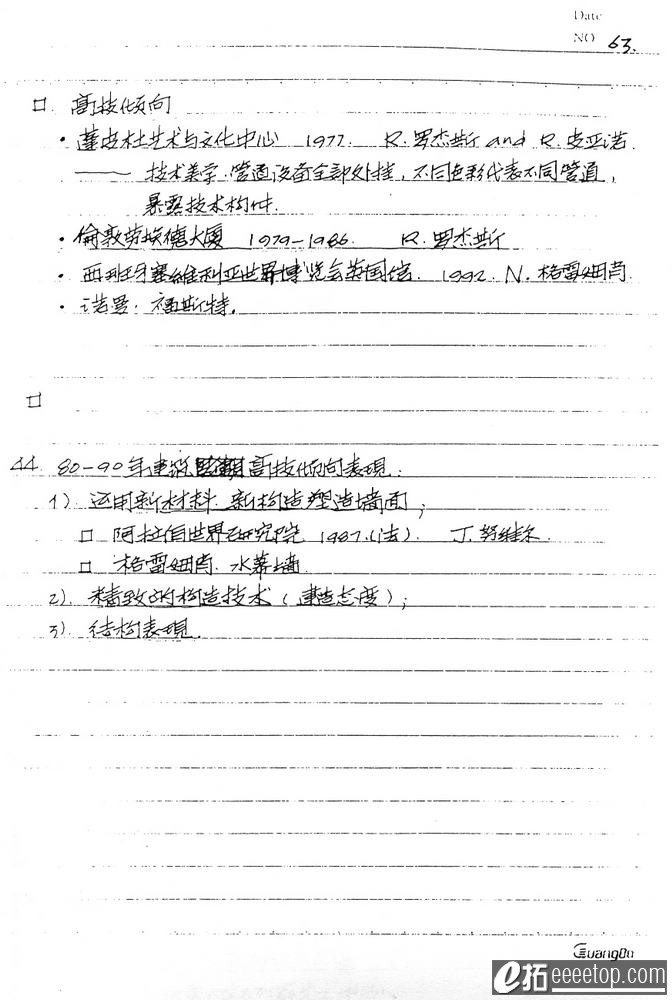 Date
NO 63.
□ 高技倾向
· 蓬皮杜艺术与文化中心 1977. R.罗杰斯 and R.皮亚诺.
—— 技术美学.管道设备全部外挂,不同色彩代表不同管道,
暴露技术构件.
· 倫敦劳埃德大廈 1979-1986. R.罗杰斯
· 西班牙塞維利亚世界博览会英国馆. 1992. N.格雷姆肖
· 诺曼·福斯特.
□
44. 80-90年建筑高技倾向表現:
1) 运用新材料.新构造塑造墙面;
□ 阿拉伯世界研究院 1987.(法). 丁.努维尔.
□ 格雷姆肖.水幕墙
2). 精致的构造技术(建造态度);
3). 结构表現.
GuangBo
e拓eeeetop.com